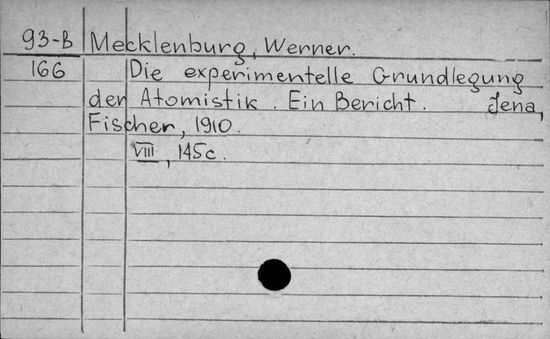 93-B Mecklenburg, Werner.
166 Die experimentelle Grundlegung
der Atomistik. Ein Bericht. Jena,
Fischer, 1910.
VIII, 145c.